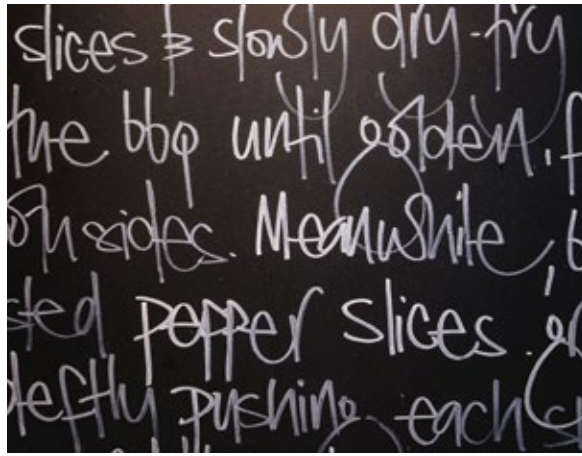 slices & slowly dry-fry
the bbq until golden.
sides. Meanwhile,
sted pepper slices.
deftly pushing each